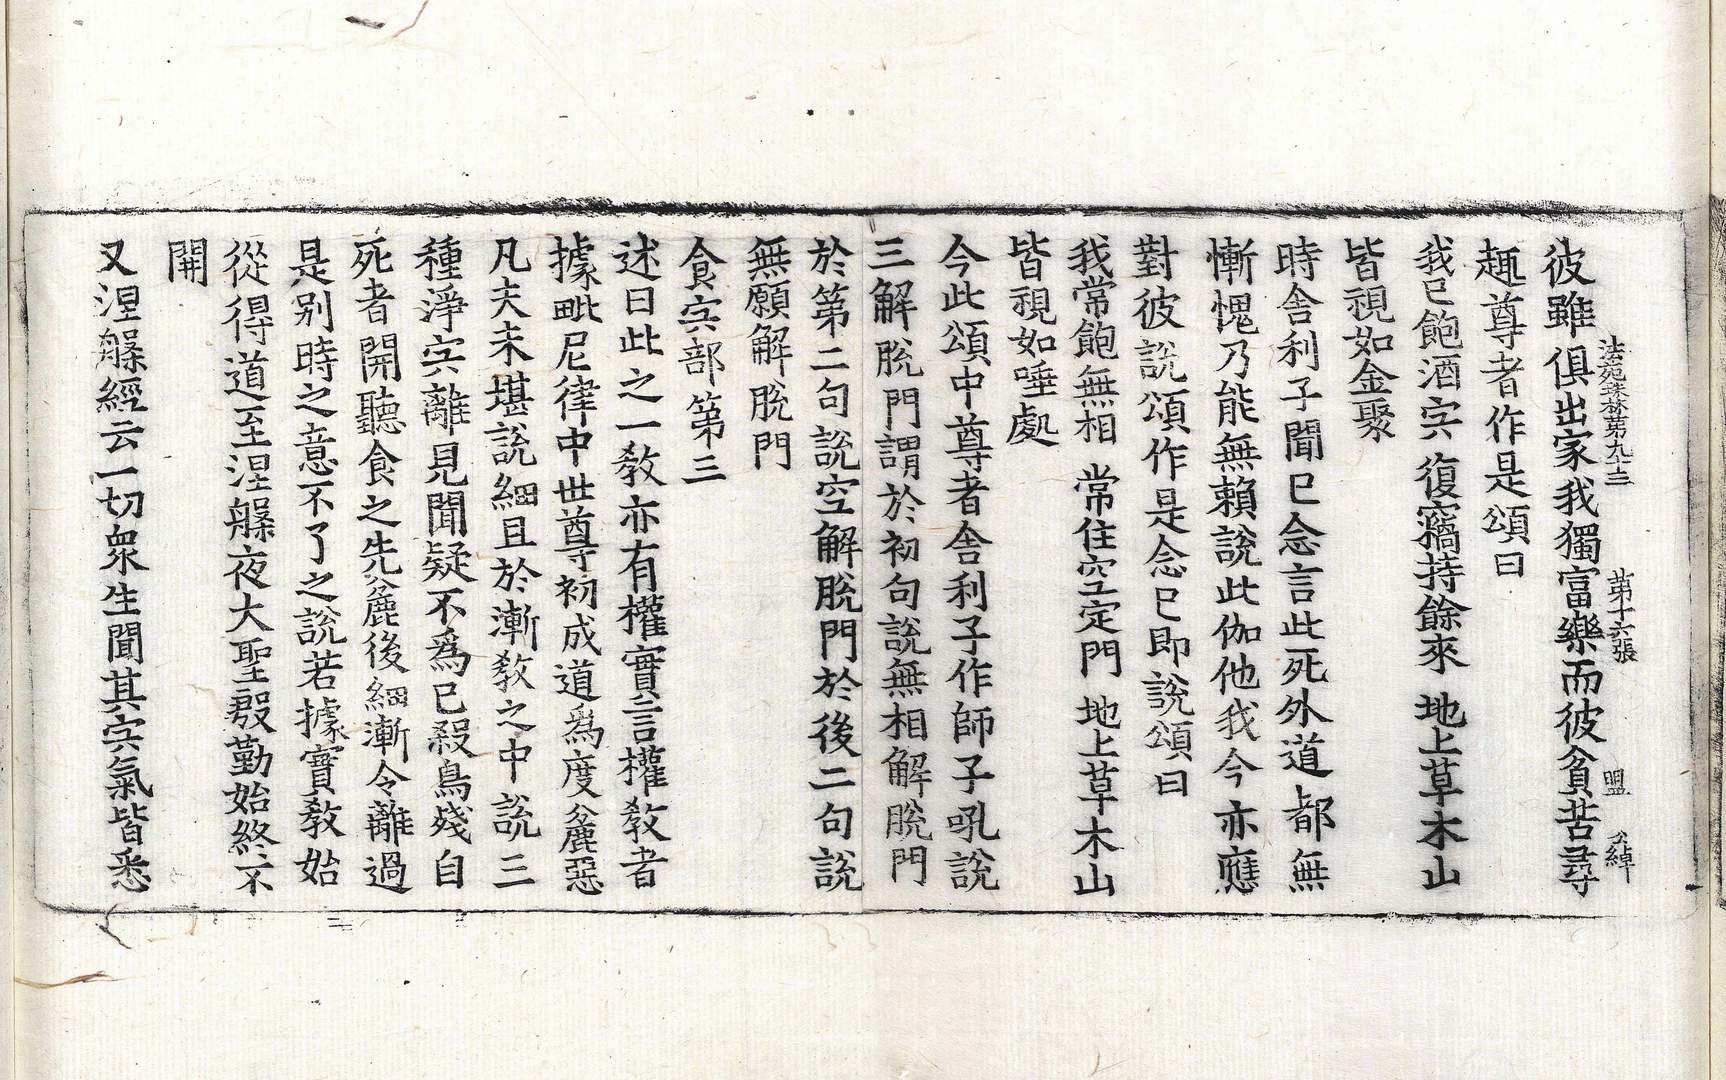 法苑珠林第九十三 第十六張 盟
彼雖俱出家我獨富樂而彼貧苦尋
趣尊者作是頌曰
我已飽酒宍 復竊持餘來 地上草木山
皆視如金聚
時舍利子聞已念言此死外道都無
慚愧乃能無賴說此伽他我今亦應
對彼說頌作是念已即說頌曰
我常飽無相 常住空定門 地上草木山
皆視如唾處
今此頌中尊者舍利子作師子吼說
三解脫門謂於初句說無相解脫門
於第二句說空解脫門於後二句說
無願解脫門
食宍部第三
述曰此之一敎亦有權實言權敎者
據毗尼律中世尊初成道爲度麁惡
凡夫未堪說細且於漸敎之中說三
種淨宍離見聞疑不爲已殺鳥殘自
死者開聽食之先麁後細漸令離過
是別時之意不了之說若據實敎始
從得道至涅槃夜大聖慇勤始終不
開
又涅槃經云一切衆生聞其宍氣皆悉